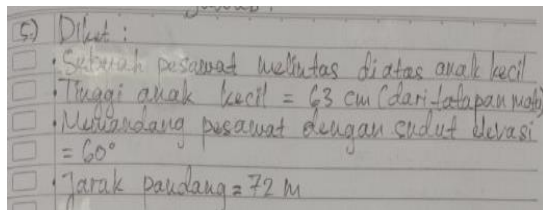 5.) Diket :
• Sebuah pesawat melintas diatas anak kecil
• Tinggi anak kecil = 63 cm (dari tatapan mata)
• Memandang pesawat dengan sudut elevasi
= 60°
• Jarak pandang = 72 m